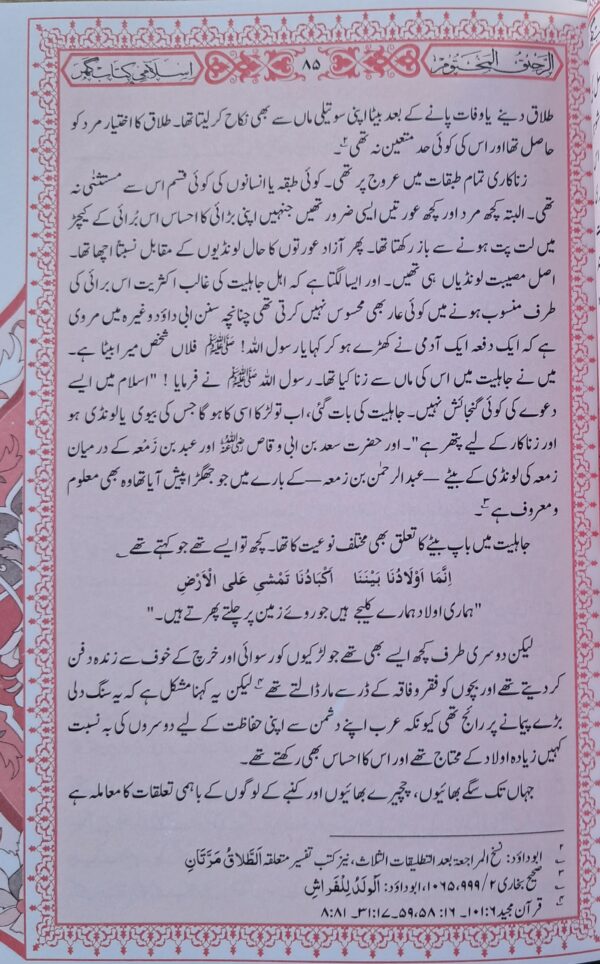 الرحیق المختوم ۸۵ اسلامی کتاب گھر
طلاق دینے یا وفات پانے کے بعد بیٹا اپنی سوتیلی ماں سے بھی نکاح کر لیتا تھا۔ طلاق کا اختیار مرد کو
حاصل تھا اور اس کی کوئی حد متعین نہ تھی ۲۔
زنا کاری تمام طبقات میں عروج پر تھی۔ کوئی طبقہ یا انسانوں کی کوئی قسم اس سے مستثنٰی نہ
تھی۔ البتہ کچھ مرد اور کچھ عورتیں ایسی ضرور تھیں جنہیں اپنی بڑائی کا احساس اس بُرائی کے کیچڑ
میں لت پت ہونے سے باز رکھتا تھا۔ پھر آزاد عورتوں کا حال لونڈیوں کے مقابل نسبتًا اچھا تھا۔
اصل مصیبت لونڈیاں ہی تھیں۔ اور ایسا لگتا ہے کہ اہل جاہلیت کی غالب اکثریت اس برائی کی
طرف منسوب ہونے میں کوئی عار بھی محسوس نہیں کرتی تھی چنانچہ سنن ابی داؤد وغیرہ میں مروی
ہے کہ ایک دفعہ ایک آدمی نے کھڑے ہو کر کہا یا رسول اللہ! ﷺ فلاں شخص میرا بیٹا ہے۔
میں نے جاہلیت میں اس کی ماں سے زنا کیا تھا۔ رسول اللہ ﷺ نے فرمایا ! "اسلام میں ایسے
دعوے کی کوئی گنجائش نہیں۔ جاہلیت کی بات گئی، اب تو لڑکا اسی کا ہو گا جس کی بیوی یا لونڈی ہو
اور زنا کار کے لیے پتھر ہے"۔ اور حضرت سعد بن ابی وقاص رضی اللہ عنہ اور عبد بن زَمْعہ کے درمیان
زمعہ کی لونڈی کے بیٹے —عبدالرحمٰن بن زمعہ —کے بارے میں جو جھگڑا پیش آیا تھا وہ بھی معلوم
و معروف ہے ۳۔
جاہلیت میں باپ بیٹے کا تعلق بھی مختلف نوعیت کا تھا۔ کچھ تو ایسے تھے جو کہتے تھے ؎
اِنَّمَا اَوْلَادُنَا بَيْنَنَا اَكْبَادُنَا تَمْشِى عَلَى الْاَرْضِ
"ہماری اولاد ہمارے کلیجے ہیں جو روئے زمین پر چلتے پھرتے ہیں۔"
لیکن دوسری طرف کچھ ایسے بھی تھے جو لڑکیوں کو رسوائی اور خرچ کے خوف سے زندہ دفن
کر دیتے تھے اور بچوں کو فقر و فاقہ کے ڈر سے مار ڈالتے تھے ۴ لیکن یہ کہنا مشکل ہے کہ یہ سنگ دلی
بڑے پیمانے پر رائج تھی کیونکہ عرب اپنے دشمن سے اپنی حفاظت کے لیے دوسروں کی بہ نسبت
کہیں زیادہ اولاد کے محتاج تھے اور اس کا احساس بھی رکھتے تھے۔
جہاں تک سگے بھائیوں، چچیرے بھائیوں اور کنبے کے لوگوں کے باہمی تعلقات کا معاملہ ہے
۲ ابوداؤد: نسخ المراجعۃ بعد التطلیقات الثلاث، نیز کتب تفسیر متعلقہ اَلطَّلَاقُ مَرَّتَانِ
۳ صحیح بخاری ۲/ ۹۹۹، ۱۰۶۵، ابوداؤد: اَلْوَلَدُ لِلْفَرَاشِ
۴ قرآن مجید ۱۰۱:۶۔ ۱۶: ۵۸، ۵۹۔ ۳۱:۱۷۔ ۸:۸۱